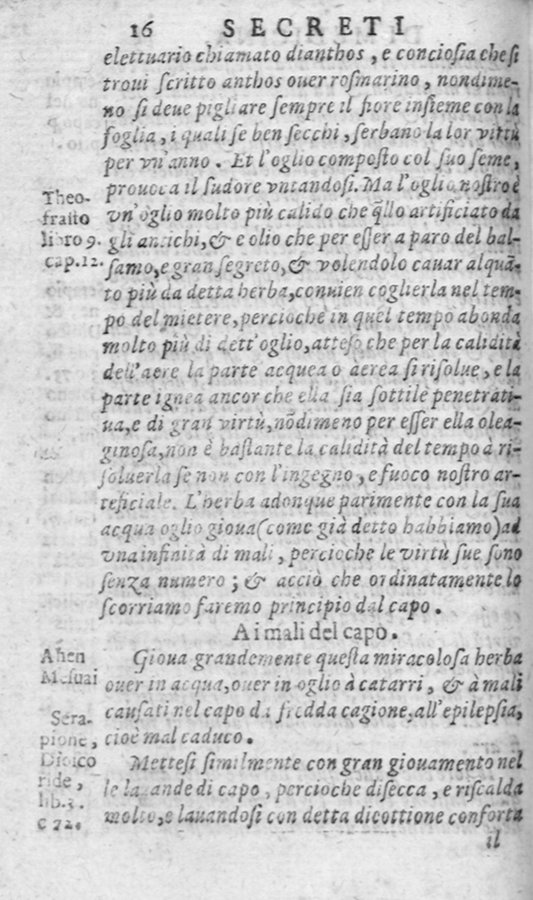 16 SECRETI
elettuario chiamato dianthos, e conciosia che si
troui scritto anthos ouer rosmarino, nondime-
no si deue pigliare sempre il fiore insieme con la
foglia, i quali se ben secchi, serbano la lor virtù
per vn'anno. Et l'oglio composto col suo seme,
prouoca il sudore vntandosi. Ma l'oglio nostro è
vn'oglio molto più calido che q̃llo artificiato da
gli antichi, & e olio che per esser a paro del bal-
samo, e gran segreto, & volendolo cauar alquã-
to più da detta herba, conuien coglierla nel tem-
po del mietere, percioche in quel tempo abonda
molto più di dett'oglio, atteso che per la calidità
dell'aere la parte acquea o aerea si risolue, e la
parte ignea ancor che ella sia sottile penetrati-
ua, e di gran virtù, nõdimeno per esser ella olea-
ginosa, non è bastante la calidità del tempo à ri-
soluerla se non con l'ingegno, e fuoco nostro ar-
teficiale. L'herba adonque parimente con la sua
acqua oglio gioua (come già detto habbiamo) ad
vna infinità di mali, percioche le virtù sue sono
senza numero; & acciò che ordinatamente lo
scorriamo faremo principio dal capo.
A i mali del capo.
Gioua grandemente questa miracolosa herba
ouer in acqua, ouer in oglio à catarri, & à mali
causati nel capo da fredda cagione, all'epilepsia,
cioè mal caduco.
Mettesi similmente con gran giouamento nel
le lauande di capo, percioche disecca, e riscalda
molto, e lauandosi con detta dicottione conforta
il
Theo-
frasto
libro 9.
cap. 12.
Ahen
Mesuai
Sera-
pione,
Diosco
ride,
lib. 3.
c 72.